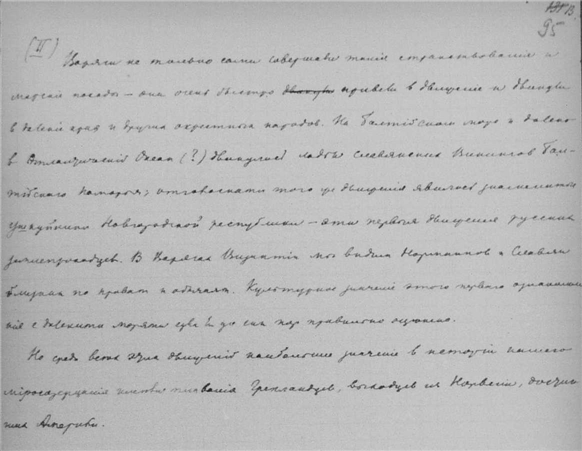 95
(III)
Варяги не только сами совершали такия странствования и
морские походы — они очень быстро двинули привели в движение и двинули
в далекий край и других окрестных народов. Из Балтийского моря и далеко
в Атлантический Океан (?) двинулись ладьи славянских Викингов Бал-
тийского поморья; отголосками того же движения явились знаменитые
ушкуйники Новгородской республики — эти первыя движения русских
землепроходцев. В Варягах Византии мы видим Норманнов и Славян
близких по нравам и обычаям. Культурное значение этого перваго ознакомле-
ния с далекими морями едва ли до сих пор правильно оценено.
Но среди всех этих движений наибольшее значение в истории нашего
міросозерцания имели плавания Гренландцев, выходцев из Норвегии, достиг-
ших Америки.